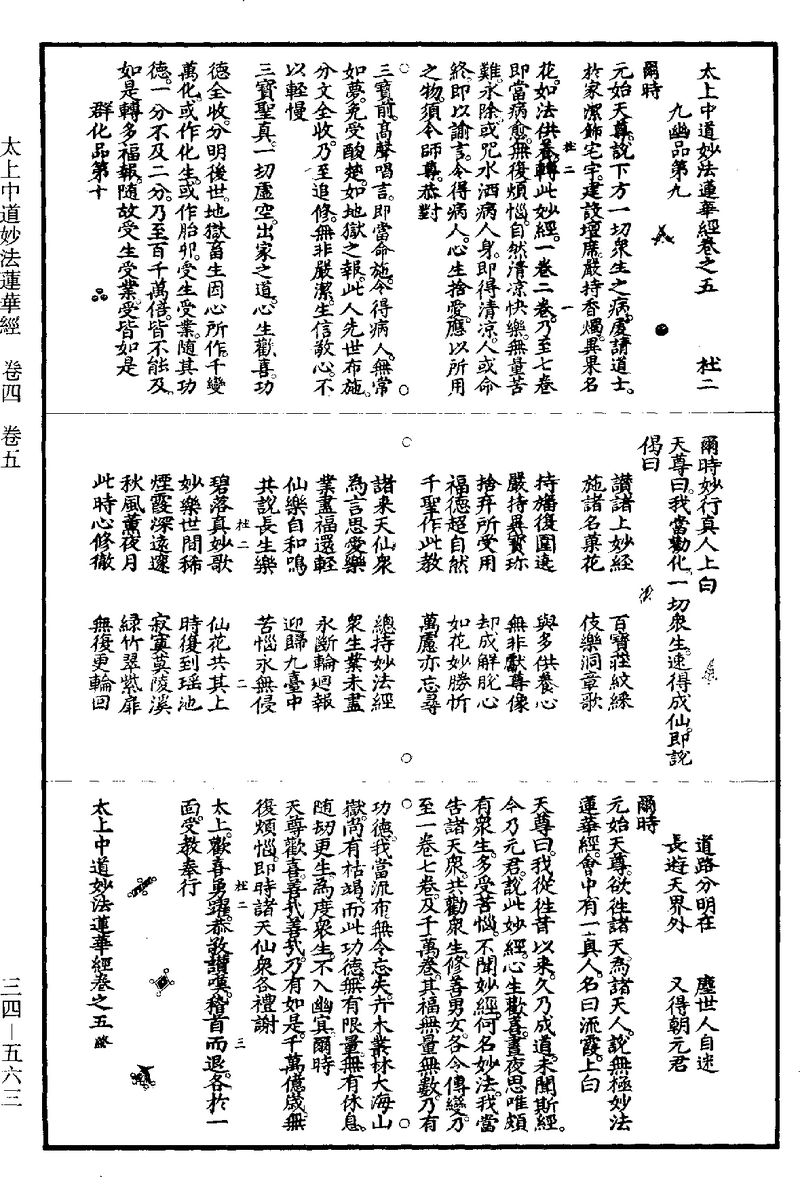 太上中道妙法蓮華經卷之五　杜二
九幽品第九
爾時
元始天尊說下方一切衆生之病虔請道士
於家潔飾宅宇建設壇席嚴持香燭異果名
花如法供養轉此妙經一卷二卷乃至七卷
杜二　一
即當病愈無復煩惱自然清凉快樂無量苦
難永除或咒水洒病人身即得清凉人或命
終即以諭言令得病人心生捨愛應以所用
之物須令師尊恭對
三寶前高聲唱言即當命施令得病人無常
如夢免受酸楚如地獄之報此人先世布施
分文全收乃至追修無非嚴潔生信敬心不
以輕慢
三寶聖真一切虛空出家之道心生歡喜功
德全收分明後世地獄畜生因心所作千變
萬化或作化生或作胎卵受生受業隨其功
德一分不及二分乃至百千萬倍皆不能及
如是轉多福報隨故受生受業受皆如是
群化品第十
爾時妙行真人上白
天尊曰我當勸化一切衆生速得成仙即說
偈曰
讚諸上妙經　百寶莊紋綵
施諸名菓花　伎樂洞章歌
持旛復圍遶　與多供養心
嚴持異寶珎　無非獻尊像
捨弃所受用　却成解脫心
福德超自然　如花妙勝忻
千聖作此教　萬慮亦忘尋
諸来天仙衆　總持妙法經
為言思愛樂　衆生業未盡
業盡福還輕　永斷輪迴報
仙樂自和鳴　迎歸九臺中
共說長生樂　苦惱永無侵
杜二　二
碧落真妙歌　仙花共其上
妙樂世間稀　時復到瑤池
煙霞深遠邃　寂寞莫陵溪
秋風薰夜月　綠竹翠紫扉
此時心修徹　無復更輪回
道路分明在　塵世人自迷
長遊天界外　又得朝元君
爾時
元始天尊欲往諸天為諸天人說無極妙法
蓮華經會中有一真人名曰流霞上白
天尊曰我從往昔以来久乃成道未聞斯經
今乃元君說此妙經心生歡喜晝夜思唯頗
有衆生多受苦惱不聞妙經何名妙法我當
告諸天衆共勸衆生修善男女各令傳變乃
至一卷七卷及千萬卷其福無量無數乃有
功德我當流布無令忘失卉木業林大海山
獄尚有枯竭而此功德無有限量無有休息
隨劫更生為度衆生不入幽冥爾時
天尊歡喜善哉善哉乃有如是千萬億歲無
復煩惱即時諸天仙衆各禮謝
杜二　三
太上歡喜勇躍恭敬讚嘆稽首而退各於一
面受教奉行
太上中道妙法蓮華經卷之五
太上中道妙法蓮華經　卷四　卷五
三四—五六三